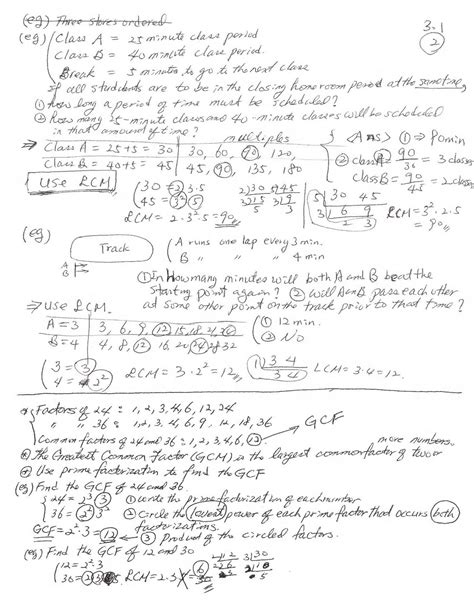 (eg) Three stores ordered
3.1
2
(eg) Class A = 25 minute class period
Class B = 40 minute class period.
Break = 5 minutes to go to the next class
If all students are to be in the closing home room period at the same time,
① How long a period of time must be scheduled?
② How many 25-minute classes and 40-minute classes will be scheduled
in that amount of time?
multiples
<Ans> ① ⇒ 90 min
⇒ Class A = 25+5 = 30 | 30, 60, 90, 120,
Class B = 40+5 = 45 | 45, 90, 135, 180
② class A = 90/30 = 3 classes
class B = 90/45 = 2 classes
Use LCM
30 = 2·3·5
45 = 3²·5
LCM = 2·3²·5 = 90
2)30 3)45
3)15 3)9
5) 30 45
3) 6 9
2 3
LCM = 3²·2·5
= 90
(eg)
Track
A
B
A runs one lap every 3 min.
B " " " 4 min
① In how many minutes will both A and B be at the
starting point again? ② Will A and B pass each other
at some other point on the track prior to that time?
⇒ Use LCM.
A = 3 | 3, 6, 9, 12, 15, 18, 21, 24
B = 4 | 4, 8, 12, 16, 20, 24, 28, 32
① 12 min.
② No
3 = 3
4 = 2²
LCM = 3·2² = 12
1) 3 4
3 4
LCM = 3·4 = 12.
Factors of 24 : 1, 2, 3, 4, 6, 12, 24
" " 36 : 1, 2, 3, 4, 6, 9, 12, 18, 36
Common factors of 24 and 36 : 1, 2, 3, 4, 6, 12
GCF
more numbers.
The Greatest Common Factor (GCM) is the largest common factor of two or
Use prime factorization to find the GCF
(eg) Find the GCF of 24 and 36.
24 = 2³·3
36 = 2²·3²
① Write the prime factorization of each number
② Circle the lowest power of each prime factor that occurs both
factorizations.
GCF = 2²·3 = 12 ← ③ Product of the circled factors.
(eg) Find the GCF of 12 and 30
12 = 2²·3